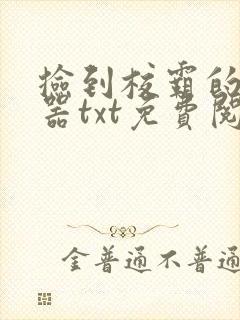 撿到校霸的
器txt免費閱
金普通不普通